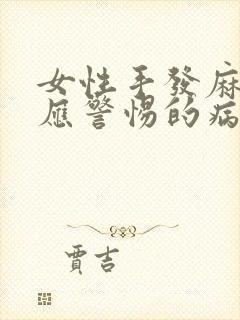 女性手發麻
應警惕的病
賈吉